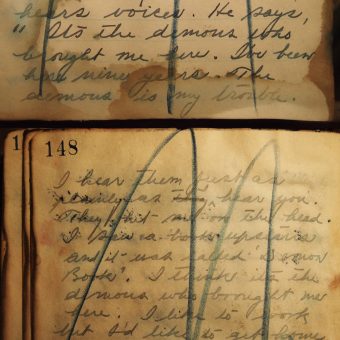 hears voices. He says,
"Its the demons who
brought me here. I've been
here nine years. The
demons is my trouble.
1 148
I hear them just as
plainly as they hear you.
They hit me on the head.
I saw a book upstairs
and it was called "Demon
Book". I think its the
demons who brought me
here. I like to work
but I'd like to get home